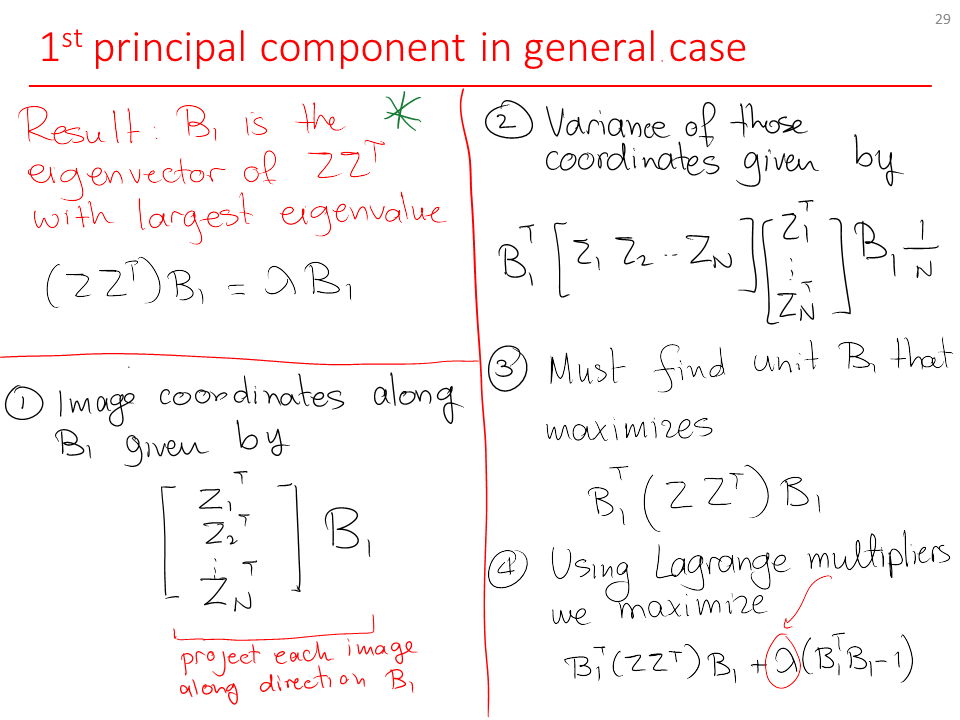 29
1st principal component in general case
Result: B₁ is the *
eigenvector of ZZᵀ
with largest eigenvalue
(ZZᵀ)B₁ = λB₁
① Image coordinates along
B₁ given by
[ Z₁ᵀ
Z₂ᵀ
⋮
Z_Nᵀ ] B₁
project each image
along direction B₁
② Variance of those
coordinates given by
B₁ᵀ [Z₁ Z₂ .. Z_N] [Z₁ᵀ ⋮ Z_Nᵀ] B₁ 1/N
③ Must find unit B₁ that
maximizes
B₁ᵀ(ZZᵀ)B₁
④ Using Lagrange multipliers
we maximize
B₁ᵀ(ZZᵀ)B₁ + λ(B₁ᵀB₁-1)